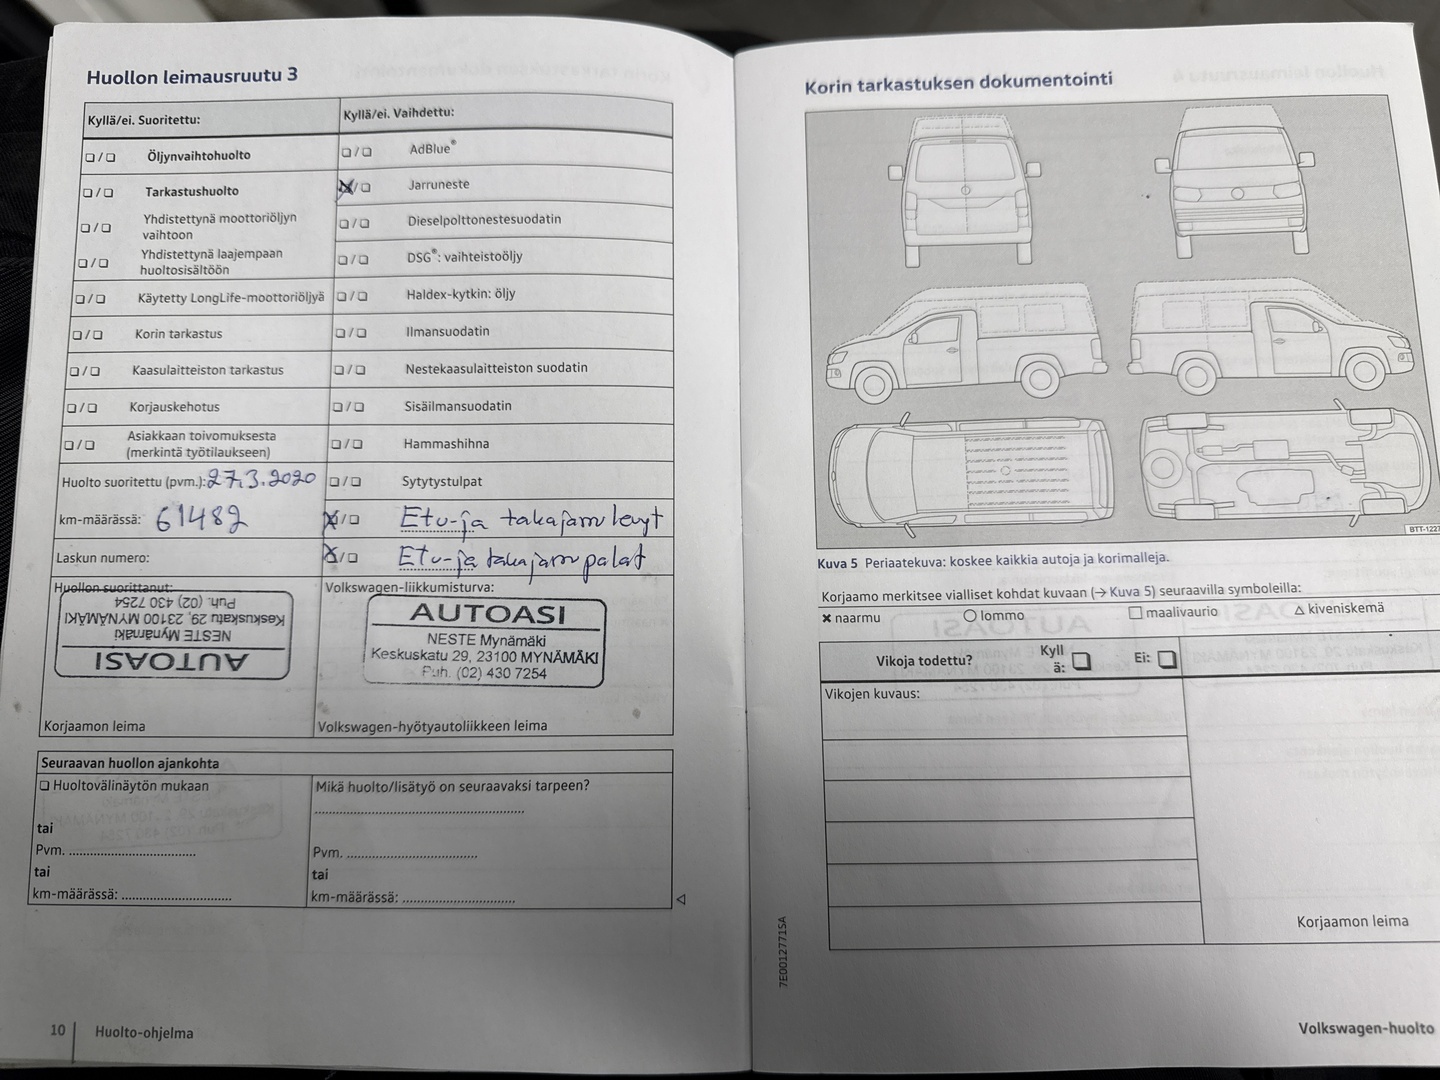 Huollon leimausruutu 3
Kyllä/ei. Suoritettu:
Kyllä/ei. Vaihdettu:
❏/❏ Öljynvaihtohuolto
❏/❏ AdBlue®
❏/❏ Tarkastushuolto
❏/❏ Jarruneste
❏/❏ Yhdistettynä moottoriöljyn
vaihtoon
❏/❏ Dieselpolttonestesuodatin
❏/❏ Yhdistettynä laajempaan
huoltosisältöön
❏/❏ DSG®: vaihteistoöljy
❏/❏ Käytetty LongLife-moottoriöljyä
❏/❏ Haldex-kytkin: öljy
❏/❏ Korin tarkastus
❏/❏ Ilmansuodatin
❏/❏ Kaasulaitteiston tarkastus
❏/❏ Nestekaasulaitteiston suodatin
❏/❏ Korjauskehotus
❏/❏ Sisäilmansuodatin
❏/❏ Asiakkaan toivomuksesta
(merkintä työtilaukseen)
❏/❏ Hammashihna
Huolto suoritettu (pvm.): 27.3.2020
❏/❏ Sytytystulpat
km-määrässä: 61482
❏/❏ Etu-ja takajarrulevyt
Laskun numero:
❏/❏ Etu-ja takajarrupalat
Huollon suorittanut:
AUTOASI
NESTE Mynämäki
Keskuskatu 29, 23100 MYNÄMÄKI
Puh. (02) 430 7254
Korjaamon leima
Volkswagen-liikkumisturva:
AUTOASI
NESTE Mynämäki
Keskuskatu 29, 23100 MYNÄMÄKI
Puh. (02) 430 7254
Volkswagen-hyötyautoliikkeen leima
Seuraavan huollon ajankohta
❏ Huoltovälinäytön mukaan
tai
Pvm. ....................
tai
km-määrässä: ....................
Mikä huolto/lisätyö on seuraavaksi tarpeen?
Pvm. ....................
tai
km-määrässä: ....................
10 Huolto-ohjelma
Korin tarkastuksen dokumentointi
BTT-1227
Kuva 5 Periaatekuva: koskee kaikkia autoja ja korimalleja.
Korjaamo merkitsee vialliset kohdat kuvaan (→ Kuva 5) seuraavilla symboleilla:
✖ naarmu ○ lommo □ maalivaurio △ kiveniskemä
Vikoja todettu? Kyll
ä: ❏ Ei: ❏
Vikojen kuvaus:
Korjaamon leima
7E0012771SA
Volkswagen-huolto